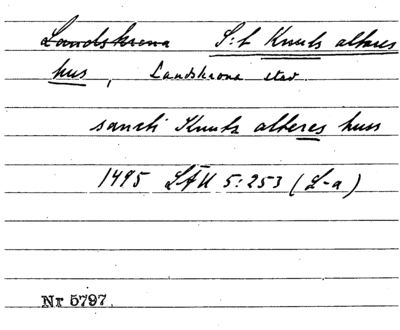 Landskrona S:t Knuts altares
hus, Landskrona stad.
sancti Knutz altteres huss
1495 LÄU 5:253 (L-a)
Nr 5797.